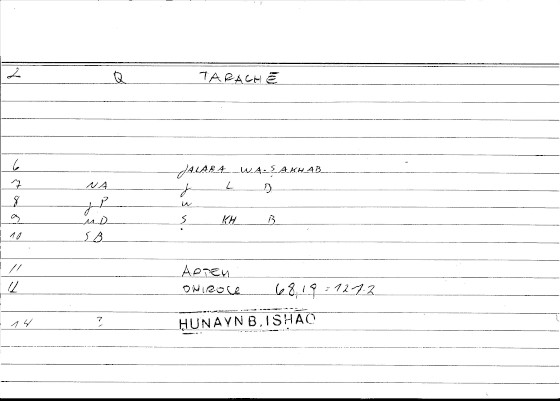 2 Q TARACHĒ
6 JALABA WA-SAKHAB
7 NA J L B
8 JP W
9 MD S KH B
10 SB
11 ARTEM
12 ONIROCR 68,19 = 127.2
14 ? HUNAYN B. ISHAQ